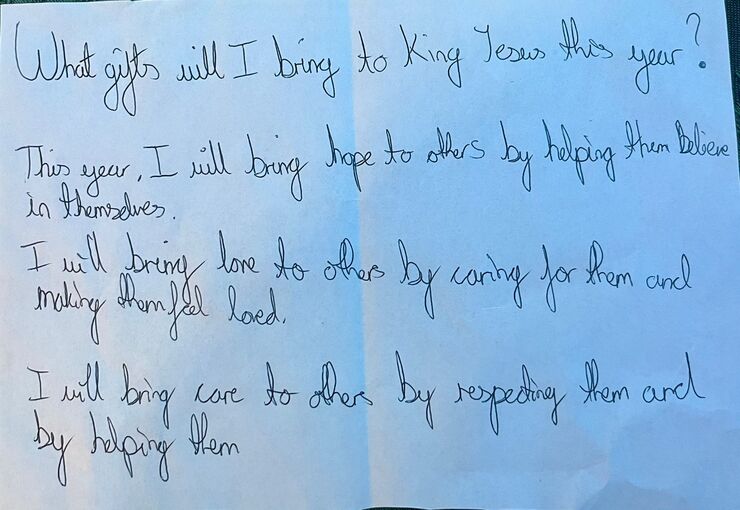 What gifts will I bring to King Jesus this year?
This year, I will bring hope to others by helping them Believe
in themselves.
I will bring love to others by caring for them and
making them feel loved.
I will bring care to others by respecting them and
by helping them